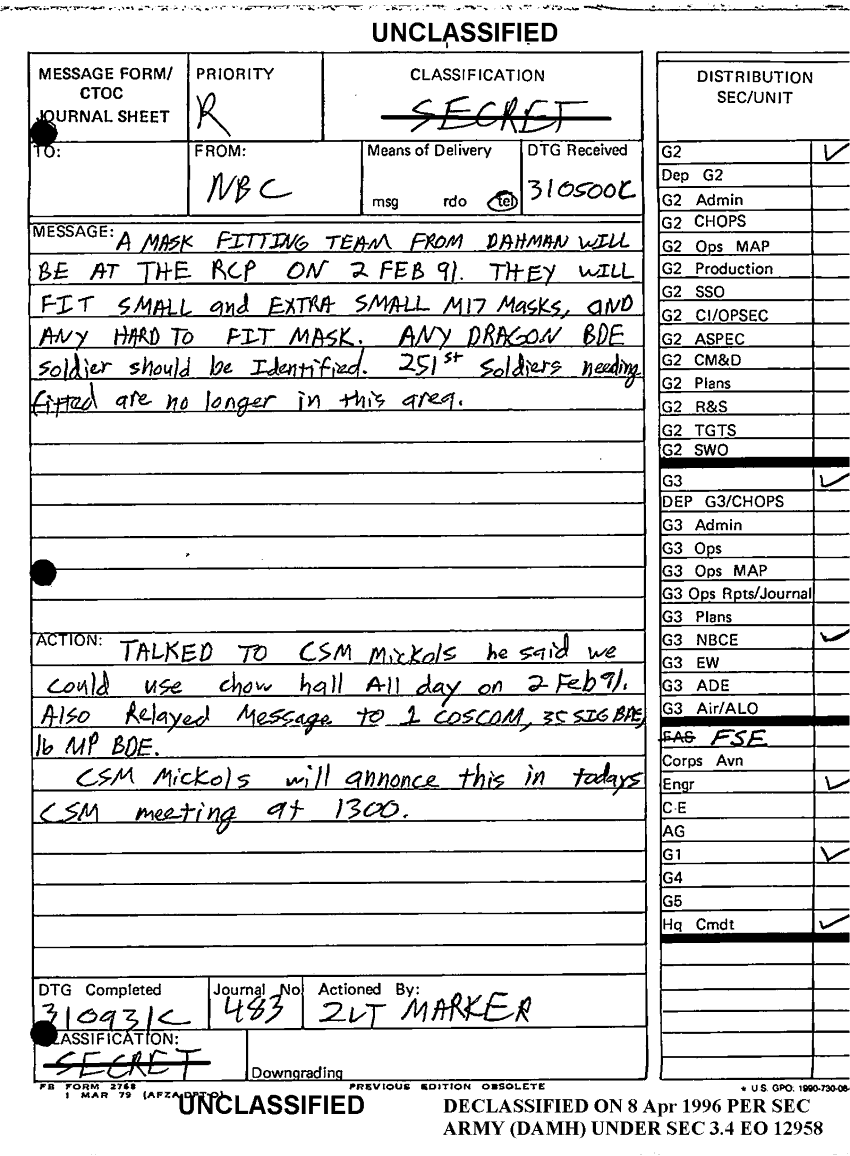 UNCLASSIFIED
MESSAGE FORM/
CTOC
JOURNAL SHEET
PRIORITY
R
CLASSIFICATION
SECRET
TO:
FROM:
NBC
Means of Delivery
msg rdo tel
DTG Received
310500C
MESSAGE: A MASK FITTING TEAM FROM DAHMAN WILL
BE AT THE RCP ON 2 FEB 91. THEY WILL
FIT SMALL and EXTRA SMALL M17 Masks, AND
ANY HARD TO FIT MASK. ANY DRAGON BDE
Soldier should be Identified. 251st Soldiers needing
fitted are no longer in this area.
ACTION: TALKED TO CSM Mickols he said we
could use chow hall All day on 2 Feb 91.
Also Relayed Message to 1 COSCOM, 35 SIG BDE,
16 MP BDE.
CSM Mickols will annonce this in todays
CSM meeting at 1300.
DTG Completed
310931C
Journal No
483
Actioned By:
2LT MARKER
CLASSIFICATION:
SECRET
Downgrading
FB FORM 2768
1 MAR 79 (AFZA-DPT-O)
PREVIOUS EDITION OBSOLETE
DISTRIBUTION
SEC/UNIT
G2 ✓
Dep G2
G2 Admin
G2 CHOPS
G2 Ops MAP
G2 Production
G2 SSO
G2 CI/OPSEC
G2 ASPEC
G2 CM&D
G2 Plans
G2 R&S
G2 TGTS
G2 SWO
G3 ✓
DEP G3/CHOPS
G3 Admin
G3 Ops
G3 Ops MAP
G3 Ops Rpts/Journal
G3 Plans
G3 NBCE ✓
G3 EW
G3 ADE
G3 Air/ALO
FAS FSE
Corps Avn
Engr ✓
C-E
AG
G1 ✓
G4
G5
Hq Cmdt ✓
* U.S. GPO: 1990-730-06
UNCLASSIFIED
DECLASSIFIED ON 8 Apr 1996 PER SEC
ARMY (DAMH) UNDER SEC 3.4 EO 12958